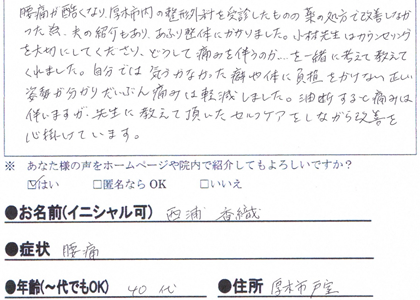 腰痛が酷くなり、厚木市内の整形外科を受診したものの薬の処方で改善しなかっ
た為、夫の紹介もあり、あふり整体にかかりました。小林先生はカウンセリング
を大切にしてくださり、どうして痛みを伴うのか…を一緒に考えて教えて
くれました。自分では気づかなかった癖や体に負担をかけない正しい
姿勢が分かりだいぶん痛みは軽減しました。油断すると痛みは
伴いますが、先生に教えて頂いたセルフケアをしながら改善を
心掛けています。
※ あなた様の声をホームページや院内で紹介してもよろしいですか？
☑はい □匿名なら OK □いいえ
●お名前(イニシャル可) 西浦 香織
●症状 腰痛
●年齢(～代でもOK) 40 代 ●住所 厚木市戸室